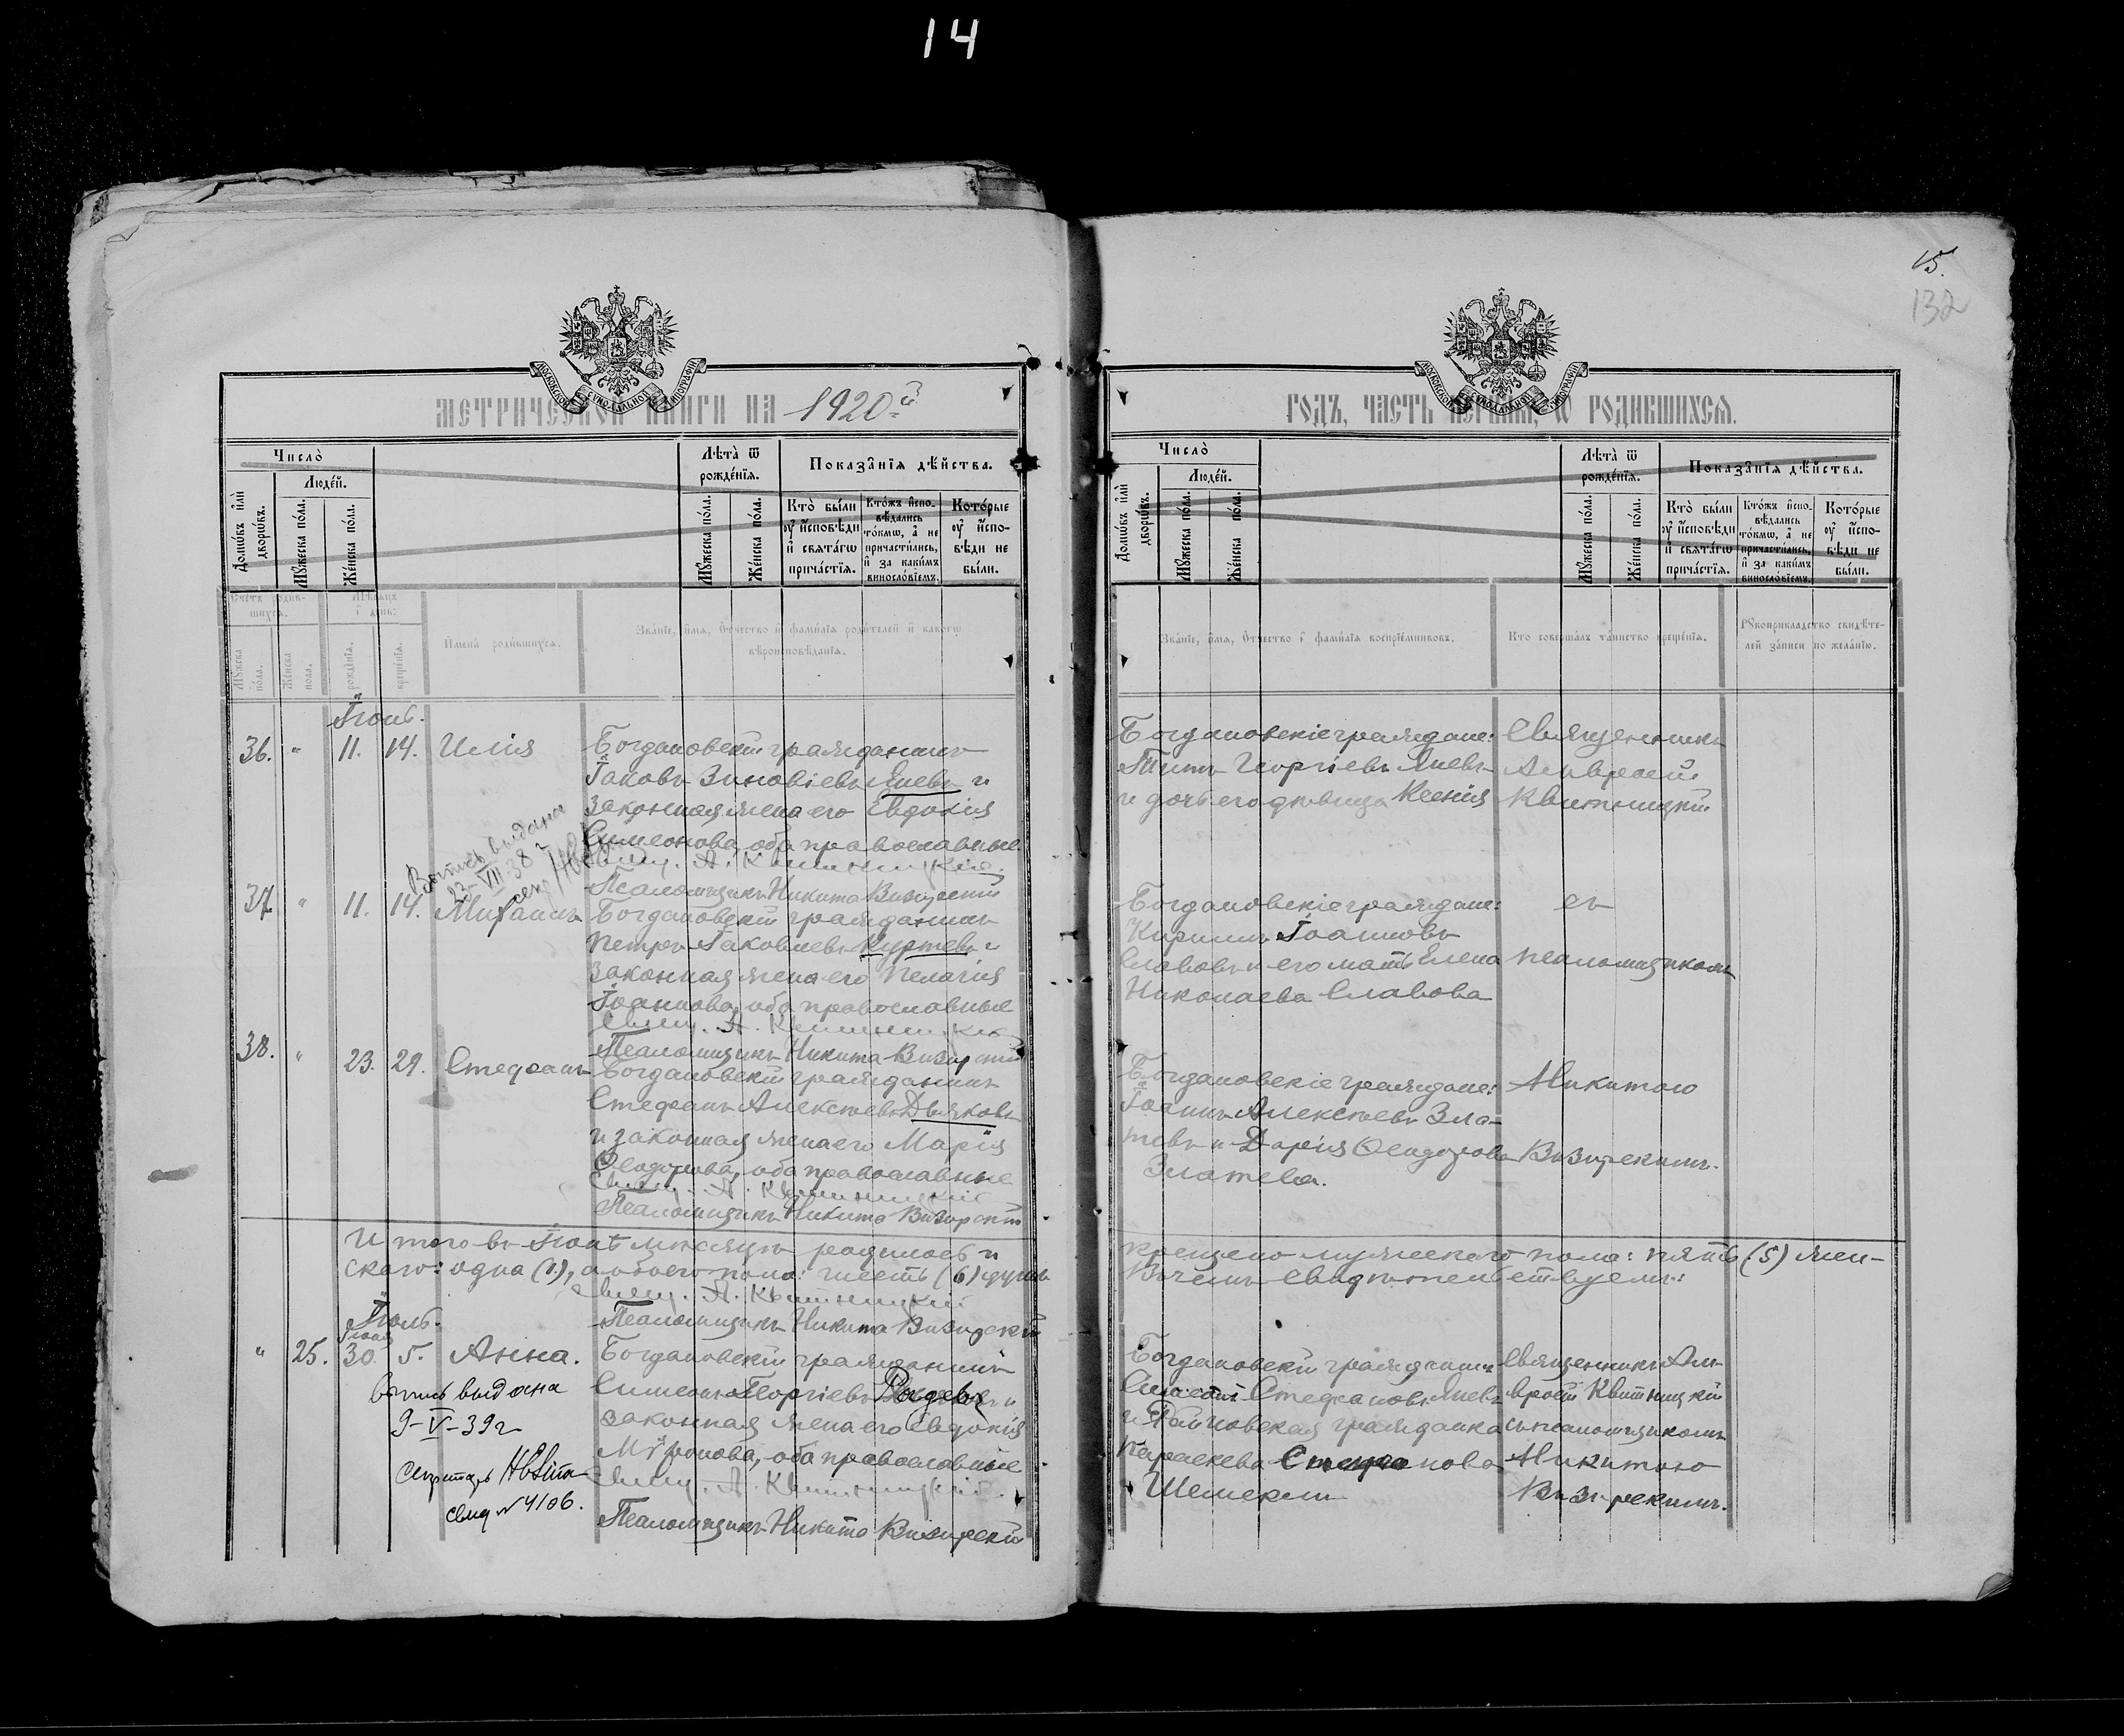 14
15.
132
МЕТРИЧЕСКОЙ КНИГИ НА 1920й
ГОДЪ, ЧАСТЬ ПЕРВАЯ, Ѡ РОДИВШИХСЯ.
Число̀
Людей.
Домѡвъ или дворѡвъ.
Мꙋжеска пола.
Женска пола.
Лѣта ѿ рожденїя.
Мꙋжеска пола.
Женска пола.
Показанїя дѣйства.
Кто были ᲂу исповѣди и святагѡ причастїя.
Ктожъ исповѣдались токмѡ, а не причастились, и за какимъ винословїемъ.
Которые ᲂу исповѣди не были.
Счетъ родившихся.
Мꙋжеска пола.
Женска пола.
Мѣсяцъ и день:
рожденїя.
крещенїя.
Имена родившихся.
Званїе, имя, Отчество и фамилїя родителей и какогѡ
вѣроисповѣданїя.
Іюнь.
36. " 11. 14. Илія
Богдановскій гражданинъ
Іаковъ Зиновіевъ Яневъ и
законная жена его Евдокія
Симеонова, оба православные
Свящ. А. Квитницкій.
Псаломщикъ Никита Визирскій
Выпись выдана
23-VII-38 г
37. " 11. 14. Михаилъ
Богдановскій гражданинъ
Петръ Іаковлевъ Куртевъ и
законная жена его Пелагія
Іоаннова, оба православные
Свящ. А. Квитницкій
Псаломщикъ Никита Визирскій
38. " 23. 29. Стефанъ
Богдановскій гражданинъ
Стефанъ Алексѣевъ Дьяковъ
и законная жена его Марія
Ѳеодорова, оба православные
Свящ. А. Квитницкій
Псаломщикъ Никита Визирскій
Итого въ Іюнѣ мѣсяцѣ родилось и
скаго: одна (1), а обоего пола: шесть (6) душъ
Свящ. А. Квитницкій
Псаломщикъ Никита Визирскій
Іюль.
Іюня
" 25. 30. 5. Анна.
Богдановскій гражданинъ
Симеонъ Георгіевъ Радевъ и
законная жена его Евдокія
Мѵронова, оба православные
Свящ. А. Квитницкій.
Псаломщикъ Никита Визирскій
Выпись выдана
9-V-39 г
Секретарь
свид № 4106.
Число̀
Людей.
Домѡвъ или дворѡвъ.
Мꙋжеска пола.
Женска пола.
Лѣта ѿ рожденїя.
Мꙋжеска пола.
Женска пола.
Показанїя дѣйства.
Кто были ᲂу исповѣди и святагѡ причастїя.
Ктожъ исповѣдались токмѡ, а не причастились, и за какимъ винословїемъ.
Которые ᲂу исповѣди не были.
Званїе, имя, Отчество и фамилїя воспрїемниковъ.
Кто совершалъ таинство крещенїя.
Рꙋкоприкладство свидѣтелей записи по желанїю.
Богдановскіе граждане:
Титъ Георгіевъ Яневъ
и дочь его дѣвица Ксенія
Священникъ
Амвросій
Квитницкій
Богдановскіе граждане:
Кириллъ Іоанновъ
Славовъ и его мать Елена
Николаева Славова
съ
псаломщикомъ
Богдановскіе граждане:
Іоаннъ Алексѣевъ Зла-
тевъ и Дарія Ѳеодорова
Златева.
Никитою
Визирскимъ.
крещено мужескаго пола: пять (5) жен-
Въ чемъ свидѣтельствуемъ:
Богдановскій гражданинъ
Стефановъ Яневъ
гражданка
Параскева Стефанова
Священникъ Ам-
вросій Квитницкій
съ псаломщикомъ
Никитою
Визирскимъ.